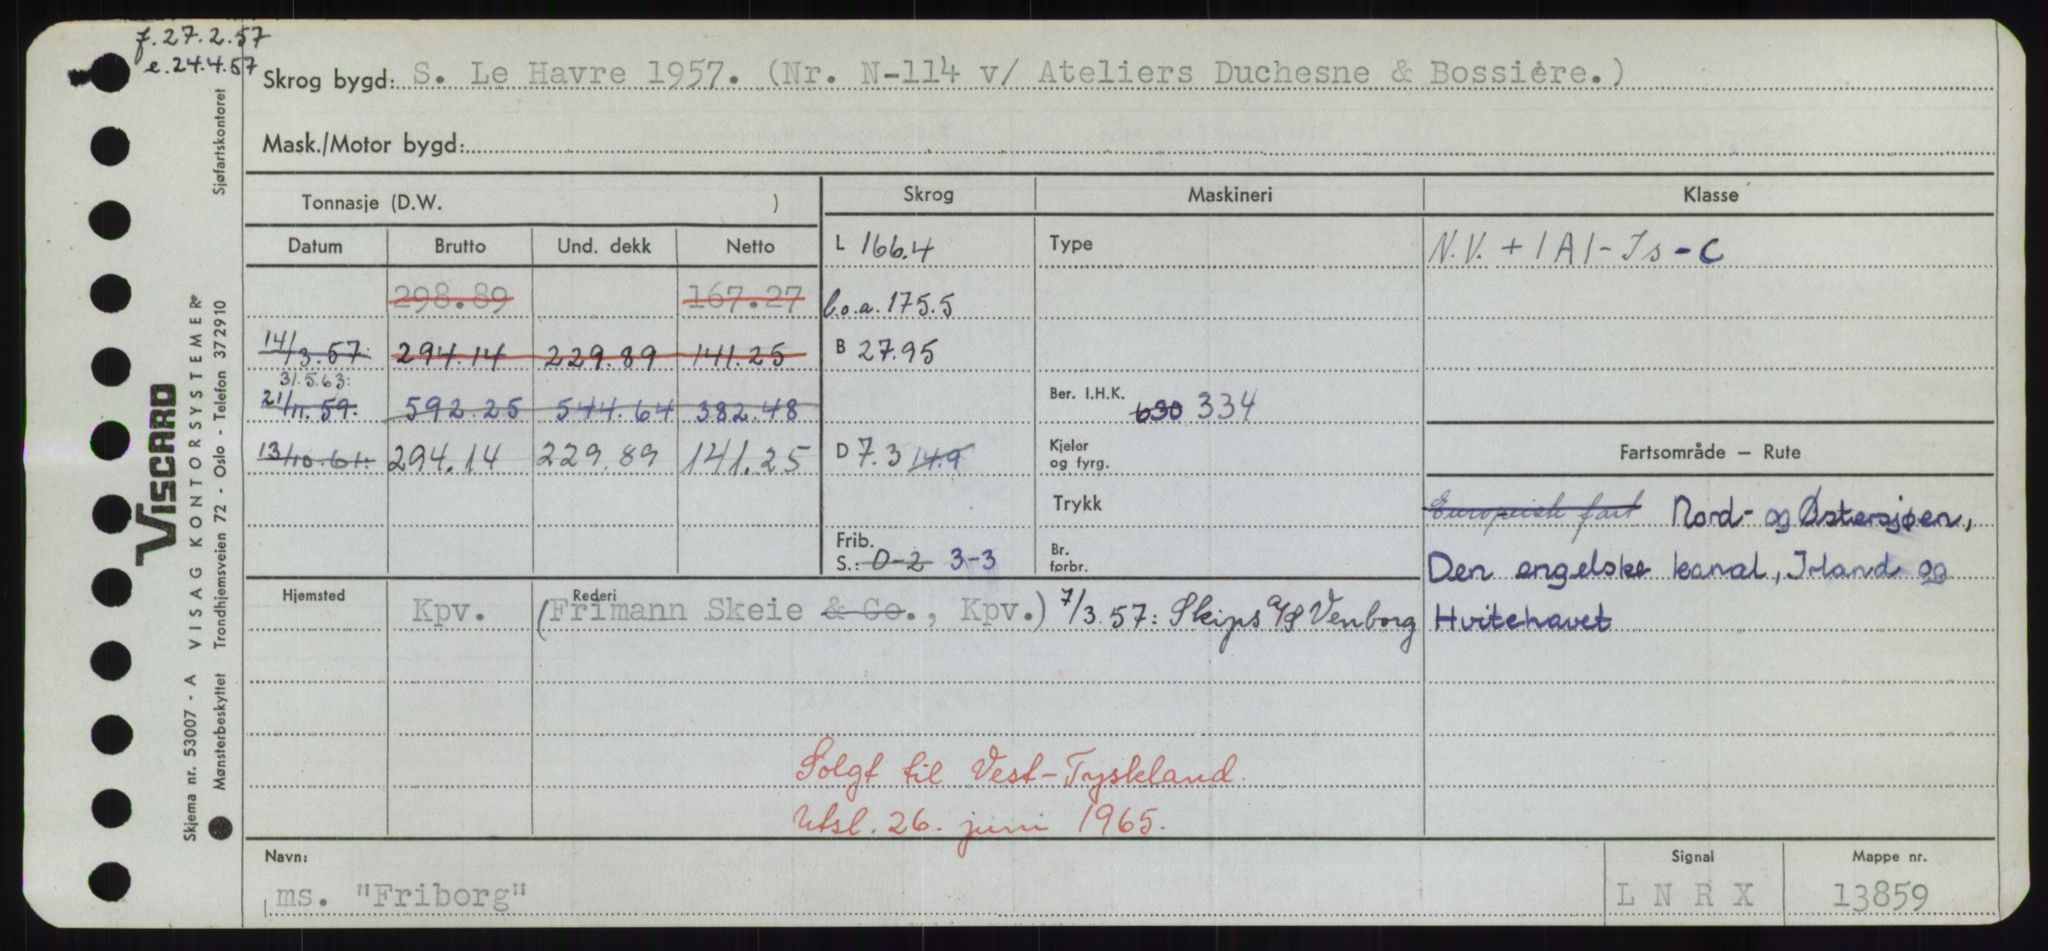 f. 27.2.57
e. 24.4.57
Skrog bygd: S. Le Havre 1957. (Nr. N-114 v/ Ateliers Duchesne & Bossière.)
Mask./Motor bygd:
Tonnasje (D.W. ) Skrog Maskineri Klasse
Datum Brutto Und. dekk Netto L 166.4 Type N.V. + 1A1 - Is - C
298.89 167.27 l.o.a. 175.5
14/3.57. 294.14 229.89 141.25 B 27.95
31.5.63:
21/11.59. 592.25 544.64 382.48 Ber. I.H.K. 630 334
13/10.61. 294.14 229.89 141.25 D 7.3 14.9 Kjeler og fyrg. Fartsområde – Rute
Trykk Europeisk fart Nord- og Østersjøen,
Frib. S.: 0-2 3-3 Br. forbr. Den engelske kanal, Irland og
Hjemsted Rederi
Kpv. (Frimann Skeie & Co., Kpv.) 7/3.57: Skips A/S Venborg Hvitehavet
Solgt til Vest-Tyskland.
Utsl. 26. juni 1965.
Navn: Signal Mappe nr.
ms. "Friborg" L N R X 13859
Viscard
VISAG KONTORSYSTEMER
Skjema nr. 53007 - A
Mønsterbeskyttet Trondhjemsveien 72 - Oslo - Telefon 372910 Sjøfartskontoret